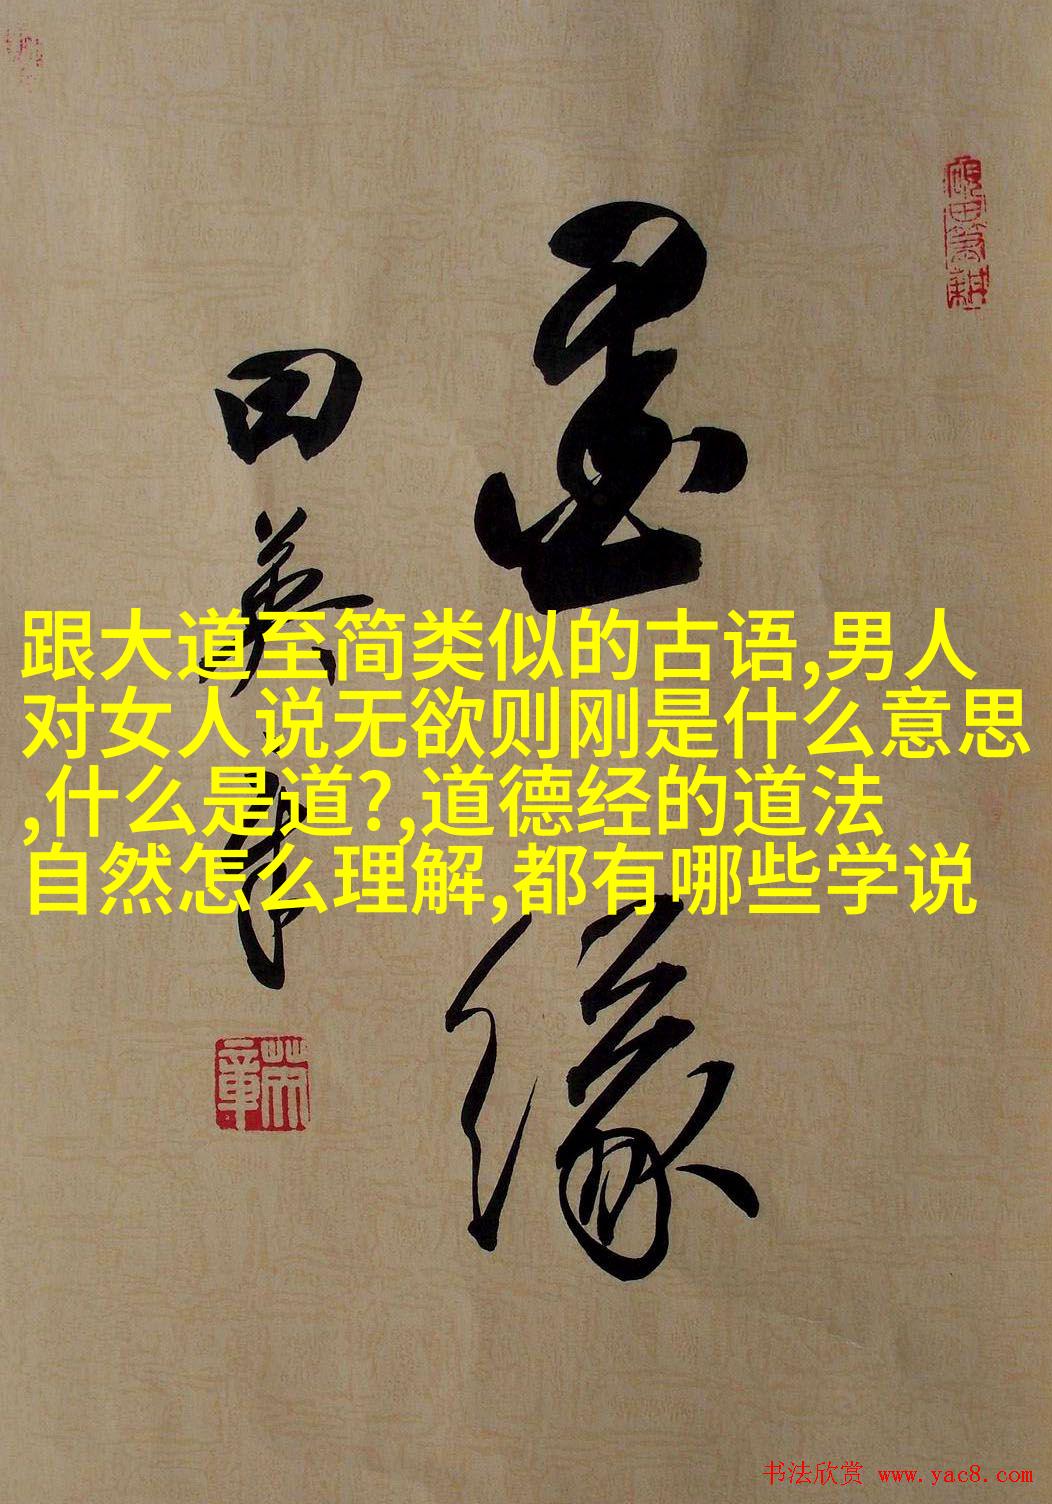 跟大道至简类似的古语,男人
对女人说无欲则刚是什么意思
,什么是道?,道德经的道法
自然怎么理解,都有哪些学说
墨缘
田英章
书法欣赏 www.yac8.com